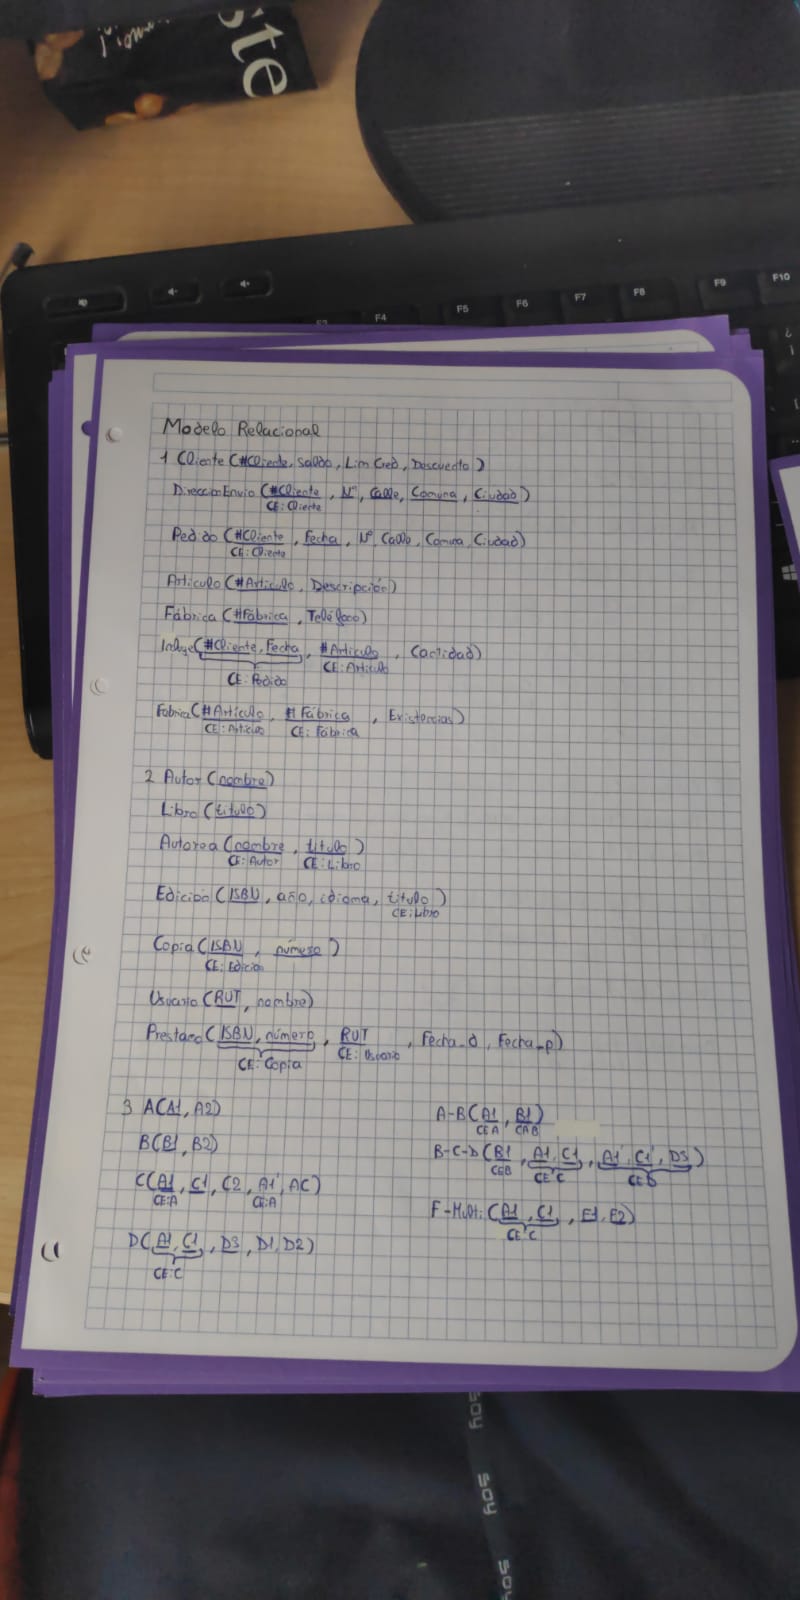 ste
F4
F5
F6
F7
F8
F9
F10
Modelo Relacional
1 Cliente (#Cliente, Saldo, LimCred, Descuento)
DireccionEnvio (#Cliente, Nº, Calle, Comuna, Ciudad)
CE: Cliente
Pedido (#Cliente, Fecha, Nº, Calle, Comuna, Ciudad)
CE: Cliente
Articulo (#Articulo, Descripción)
Fábrica (#Fábrica, Teléfono)
Incluye (#Cliente, Fecha, #Articulo, Cantidad)
CE: Pedido CE: Articulo
Fabrica (#Articulo, #Fábrica, Existencias)
CE: Articulo CE: Fábrica
2 Autor (nombre)
Libro (titulo)
Autorea (nombre, titulo)
CE: Autor CE: Libro
Edición (ISBN, año, idioma, titulo)
CE: Libro
Copia (ISBN, número)
CE: Edicion
Usuario (RUT, nombre)
Prestamo (ISBN, número, RUT, Fecha_d, Fecha_p)
CE: Copia CE: Usuario
3 A(A1, A2)
B(B1, B2)
C(A1, C1, C2, A1', AC)
CE:A CE:A
D(A1, C1, D3, D1, D2)
CE:C
A-B(A1, B1)
CE A
B-C-D(B1, A1, C1, A1', C1', D3)
CEB CE:C
F-Multi (A1, C1, E1, E2)
CE:C
soy
soy
soy